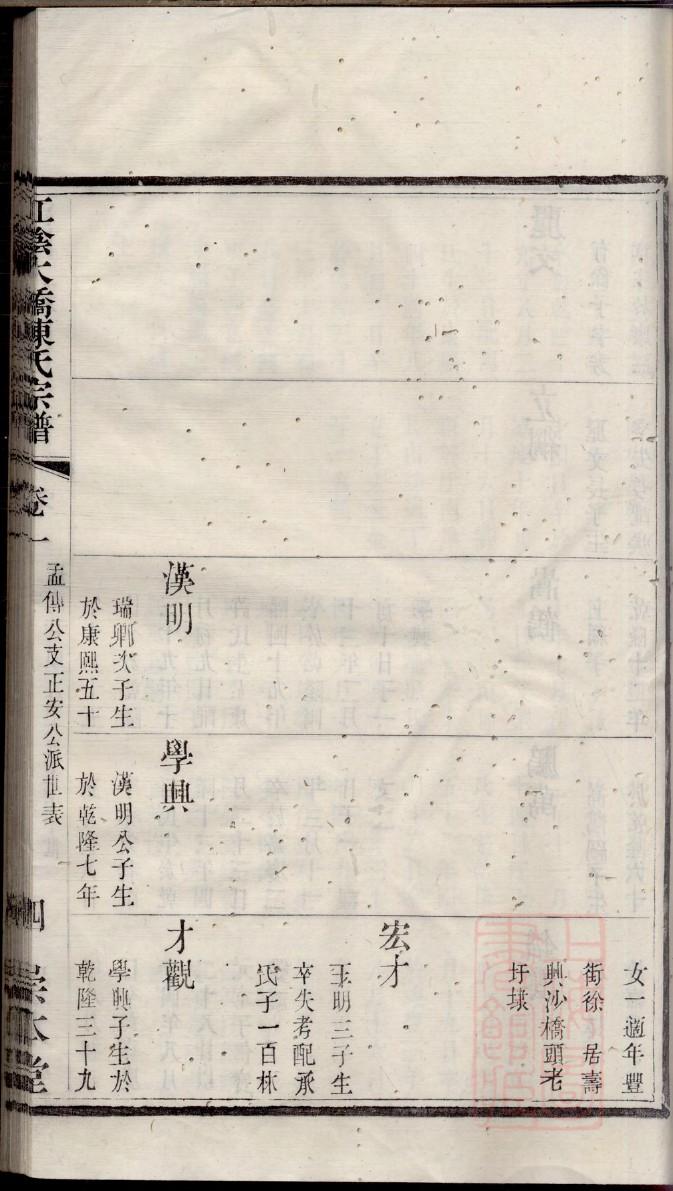 女一適年豐
街徐 居壽
興沙橋頭老
圩埭
宏才
玉明三子生
卒失考配承
氏子一百林
漢明
瑞卿次子生
於康熙五十
學興
漢明公子生
於乾隆七年
才觀
學興子生於
乾隆三十九
江陰大橋陳氏宗譜
卷一
孟傳公支正安公派世表
四
崇本堂